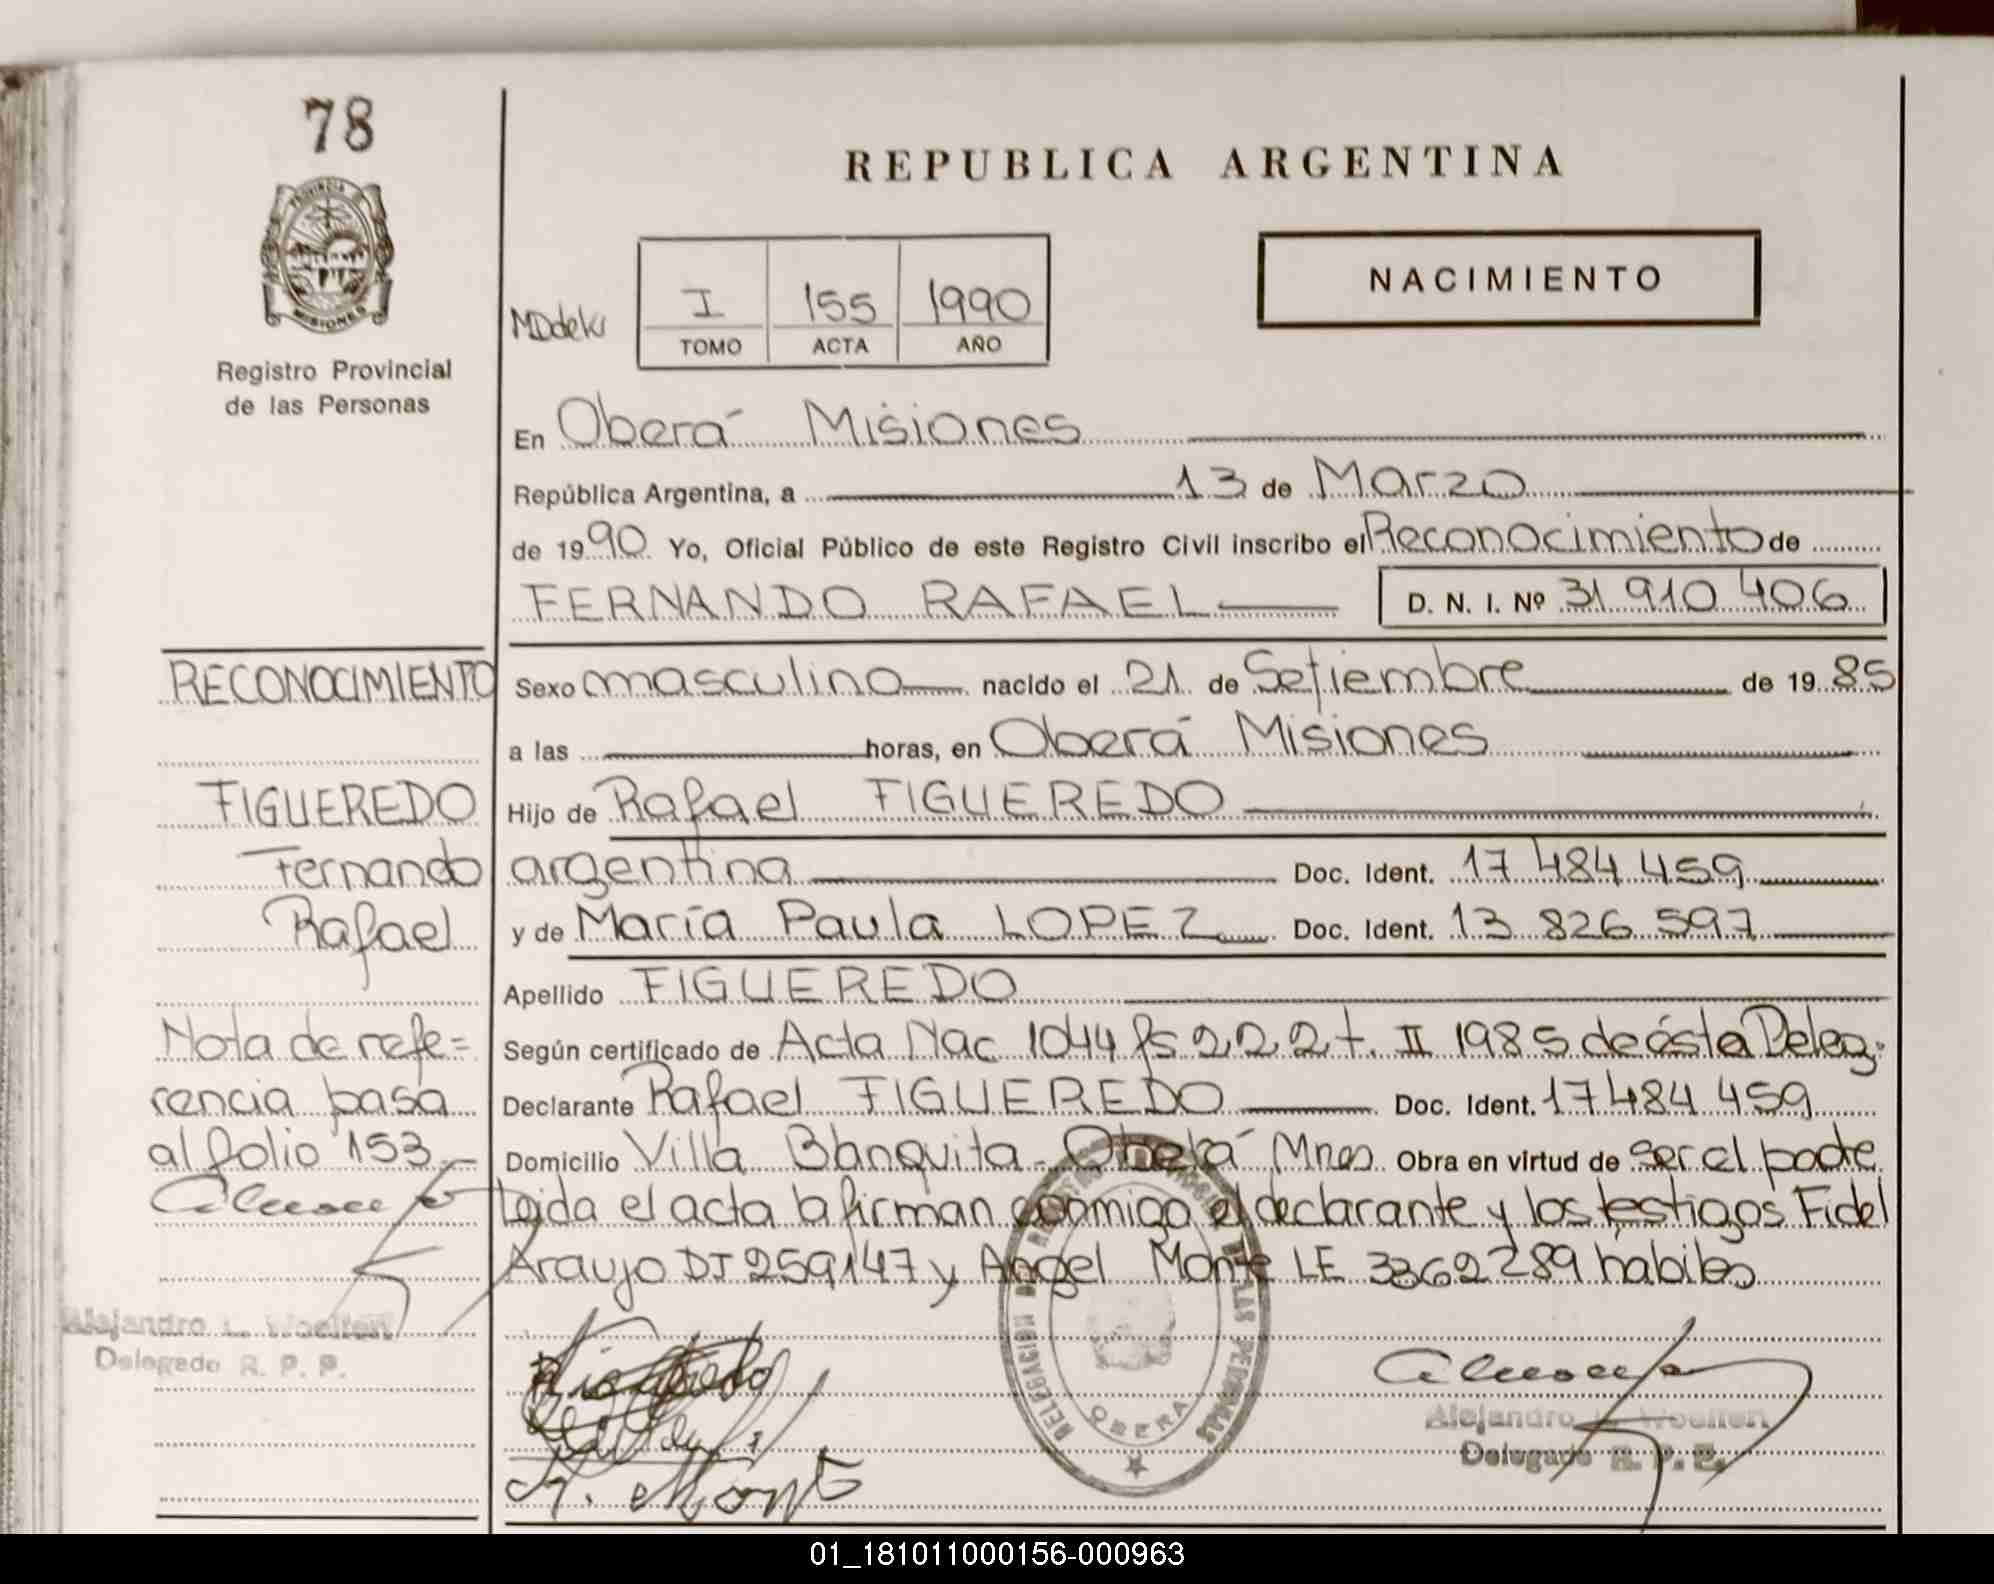 78
REPUBLICA ARGENTINA
PROVINCIA
MISIONES
Registro Provincial
de las Personas
NACIMIENTO
I 155 1990
TOMO ACTA AÑO
En Oberá Misiones
República Argentina, a 13 de Marzo
de 1990 Yo, Oficial Público de este Registro Civil inscribo el Reconocimiento de
FERNANDO RAFAEL D. N. I. Nº 31 910 406
RECONOCIMIENTO
FIGUEREDO
Fernando
Rafael
Nota de refe=
rencia pasa
al folio 153
Alejandro L. Woelfen
Delegado R. P. P.
Sexo masculino nacido el 21 de Setiembre de 1985
a las horas, en Oberá Misiones
Hijo de Rafael FIGUEREDO
argentina Doc. Ident. 17 484 459
y de María Paula LOPEZ Doc. Ident. 13 826 597
Apellido FIGUEREDO
Según certificado de Acta Nac 1044 fs 222 t. II 1985 de ésta Deleg.
Declarante Rafael FIGUEREDO Doc. Ident. 17 484 459
Domicilio Villa Blanquita Oberá Mnes Obra en virtud de ser el padre
Leida el acta la firman conmigo el declarante y los testigos Fidel
Araujo DI 259147 y Angel Monte LE 3362289 habiles
DELEGACION DEL REGISTRO PROVINCIAL DE LAS PERSONAS
OBERA
Alejandro L. Woelfen
Delegado R. P. P.
01_181011000156-000963